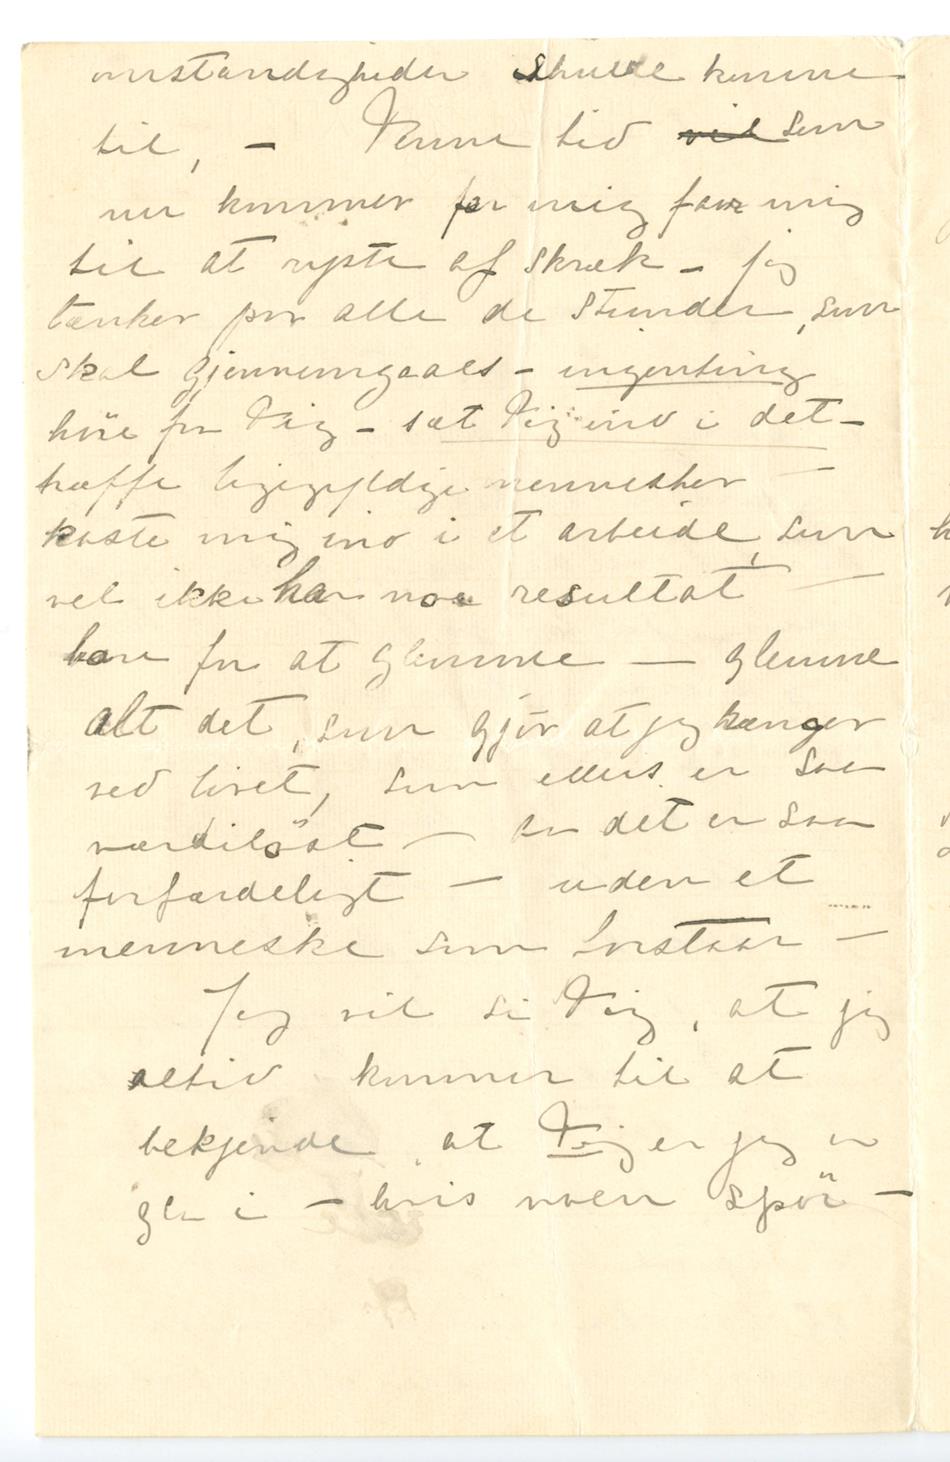 omstændigheder skulde kunne
til, – Denne tid ~~vil~~ som
nu kommer for mig faar mig
til at ryste af skræk – jeg
tænker paa alle de Stunder, som
skal gjennemgaaes – ingenting
höre fra Dig – sæt Dig ind i det –
træffe ligegyldige mennesker –
kaste mig ind i et arbeide, som
vel ikke har noe resultat –
bare for at glemme – glemme
alt det, som gjör at jeg hænger
ved livet, som ellers er saa
værdilöst – det er saa
forfærdeligt – uden et
menneske som forstaar –
Jeg vil si Dig, at jeg
altid kommer til at
bekjende at Dig er jeg er
gla i – hvis noen spör –